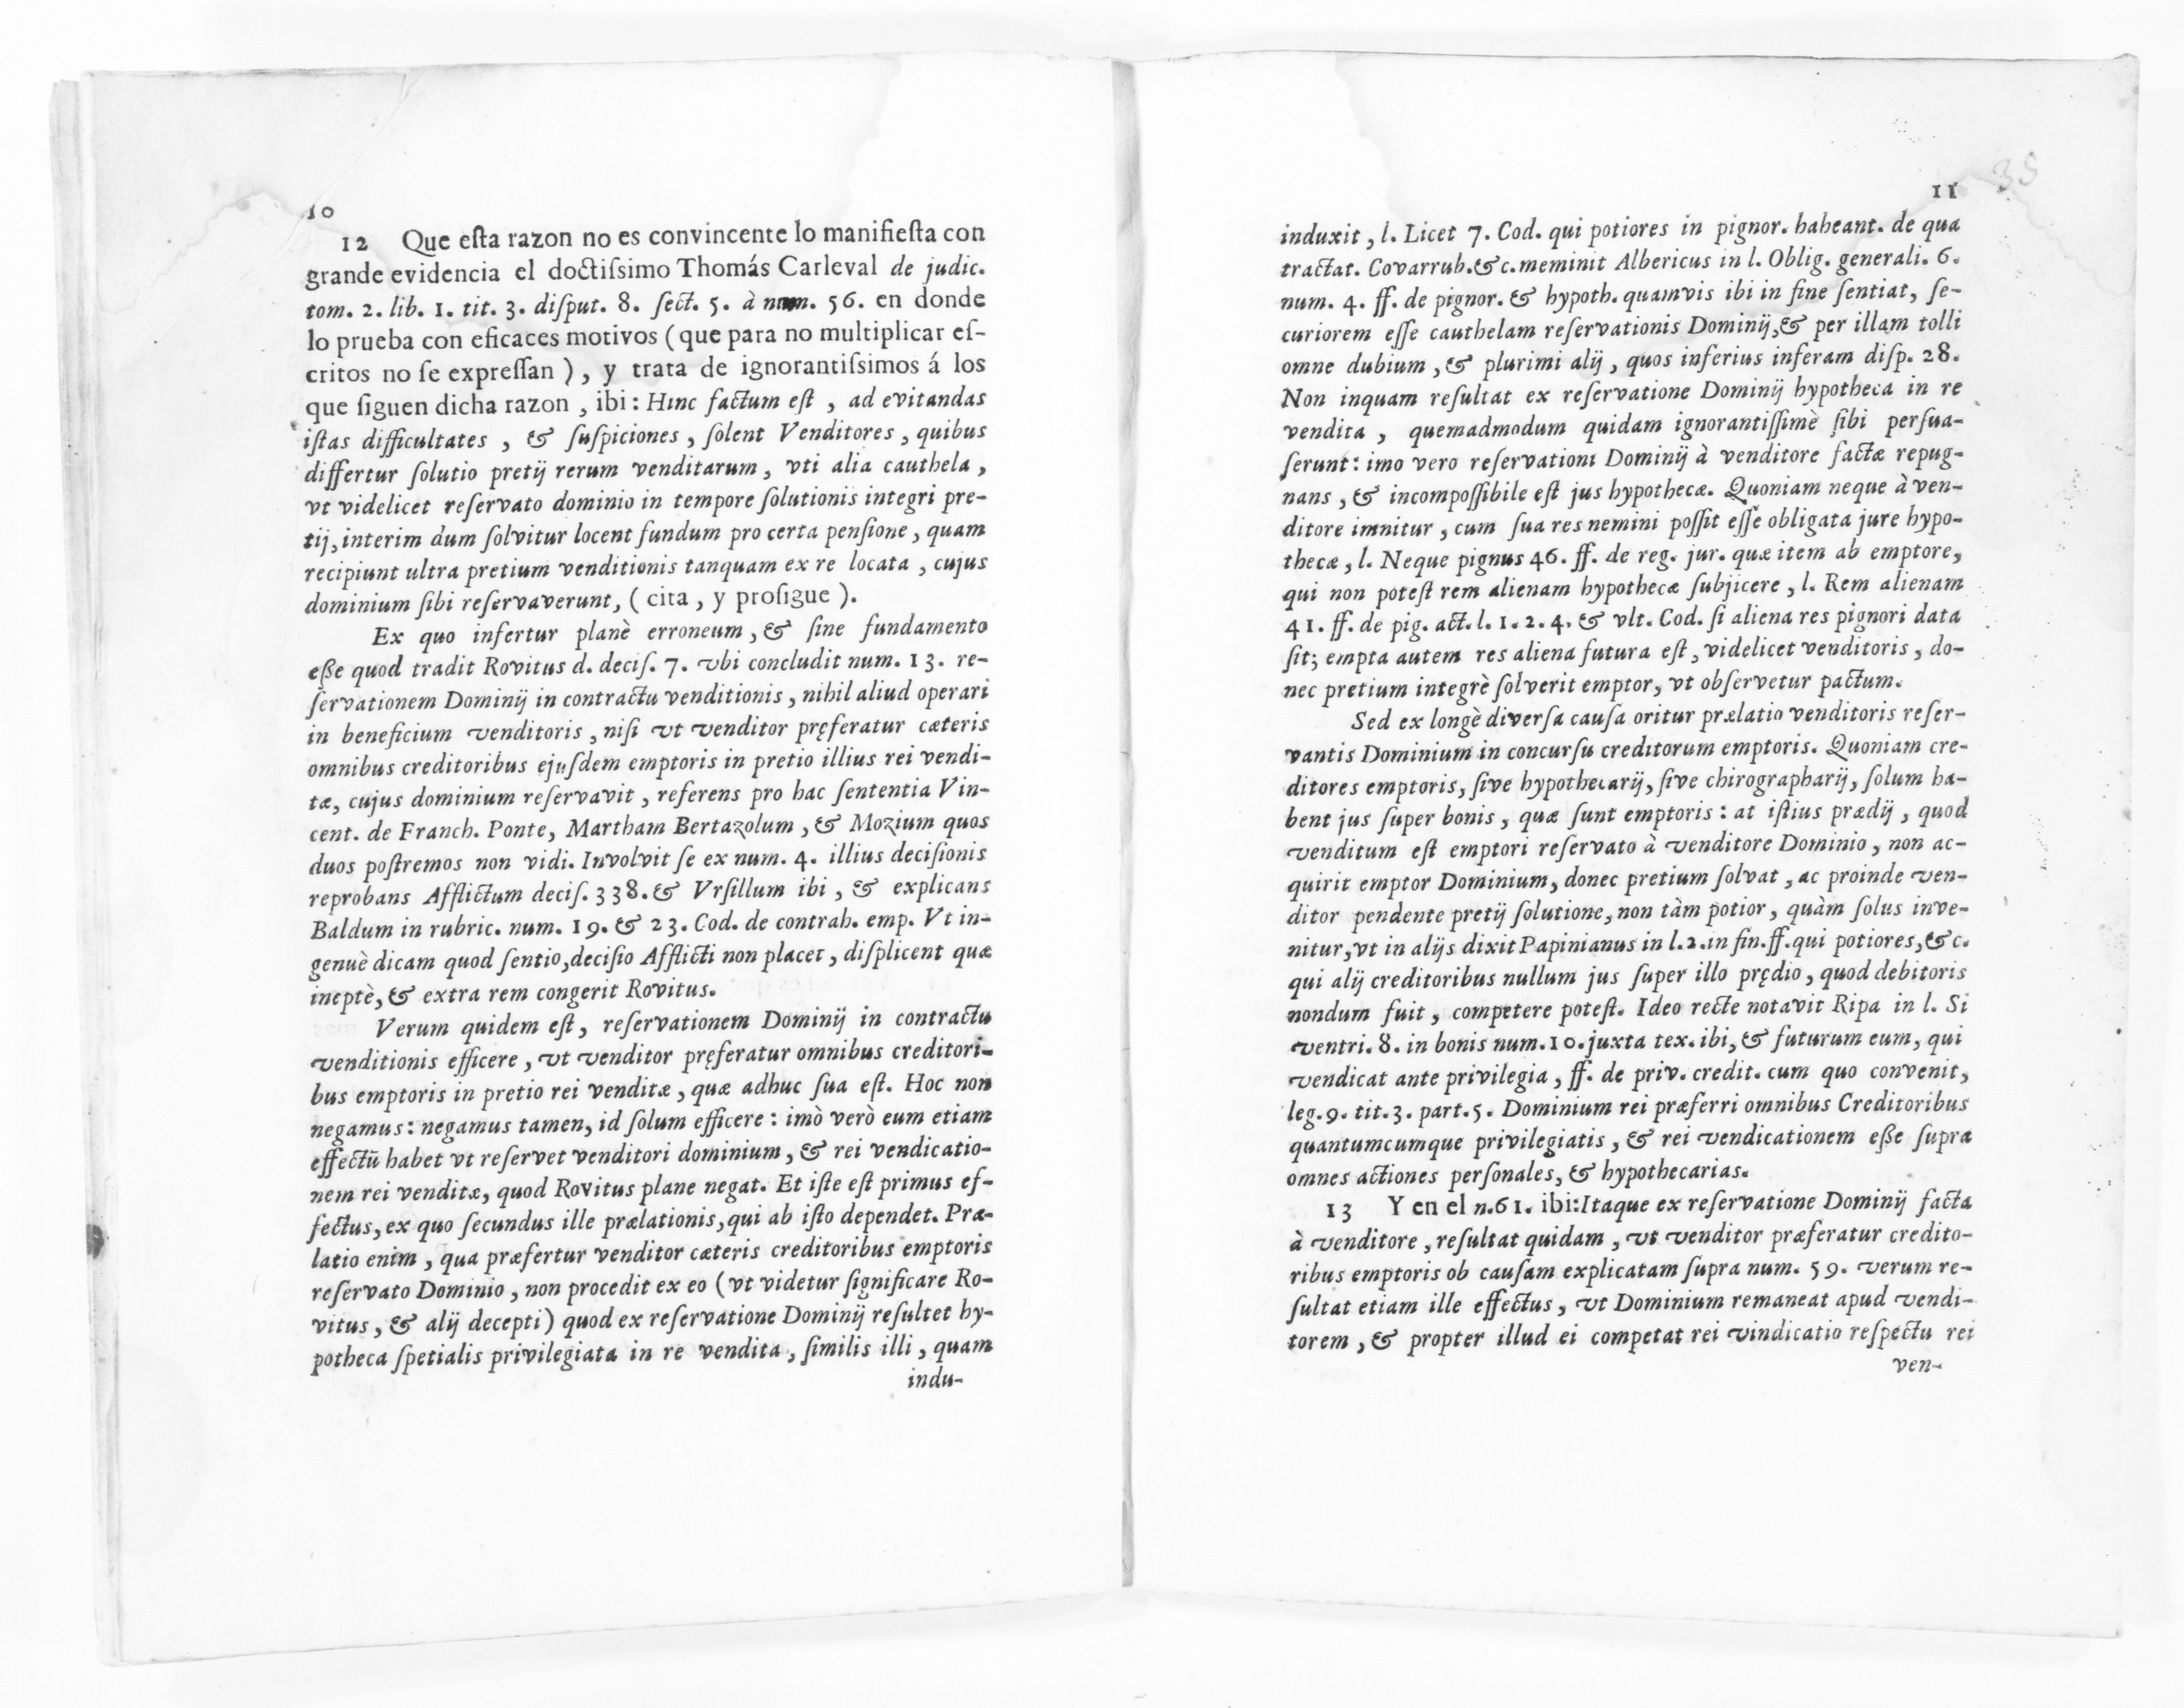 10
12 Que esta razon no es convincente lo manifiesta con
grande evidencia el doctissimo Thomás Carleval de judic.
tom. 2. lib. 1. tit. 3. disput. 8. sect. 5. à num. 56. en donde
lo prueba con eficaces motivos ( que para no multiplicar es-
critos no se expressan ) , y trata de ignorantissimos á los
que siguen dicha razon , ibi : Hinc factum est , ad evitandas
istas difficultates , & suspiciones , solent Venditores , quibus
differtur solutio pretij rerum venditarum , vti alia cauthela ,
vt videlicet reservato dominio in tempore solutionis integri pre-
tij, interim dum solvitur locent fundum pro certa pensione , quam
recipiunt ultra pretium venditionis tanquam ex re locata , cujus
dominium sibi reservaverunt, ( cita , y prosigue ).
Ex quo infertur planè erroneum , & sine fundamento
eße quod tradit Rovitus d. decis. 7. vbi concludit num. 13. re-
servationem Dominij in contractu venditionis , nihil aliud operari
in beneficium venditoris , nisi vt venditor pręferatur cæteris
omnibus creditoribus ejusdem emptoris in pretio illius rei vendi-
tæ, cujus dominium reservavit , referens pro hac sententia Vin-
cent. de Franch. Ponte, Martham Bertazolum , & Mozium quos
duos postremos non vidi. Involvit se ex num. 4. illius decisionis
reprobans Afflictum decis. 338. & Vrsillum ibi , & explicans
Baldum in rubric. num. 19. & 23. Cod. de contrah. emp. Vt in-
genuè dicam quod sentio, decisio Afflicti non placet , displicent quæ
ineptè, & extra rem congerit Rovitus.
Verum quidem est, reservationem Dominij in contractu
venditionis efficere , vt venditor pręferatur omnibus creditori-
bus emptoris in pretio rei venditæ , quæ adhuc sua est. Hoc non
negamus : negamus tamen, id solum efficere : imò verò eum etiam
effectū habet vt reservet venditori dominium , & rei vendicatio-
nem rei venditæ, quod Rovitus plane negat. Et iste est primus ef-
fectus, ex quo secundus ille prælationis, qui ab isto dependet. Præ-
latio enim , qua præfertur venditor cæteris creditoribus emptoris
reservato Dominio , non procedit ex eo ( vt videtur significare Ro-
vitus , & alij decepti ) quod ex reservatione Dominij resultet hy-
potheca spetialis privilegiata in re vendita , similis illi , quam
indu-
35
11
induxit , l. Licet 7. Cod. qui potiores in pignor. habeant. de qua
tractat. Covarrub. & c. meminit Albericus in l. Oblig. generali. 6.
num. 4. ff. de pignor. & hypoth. quamvis ibi in fine sentiat, se-
curiorem esse cauthelam reservationis Dominij, & per illam tolli
omne dubium , & plurimi alij , quos inferius inferam disp. 28.
Non inquam resultat ex reservatione Dominij hypotheca in re
vendita , quemadmodum quidam ignorantissimè sibi persua-
serunt : imo vero reservationi Dominij à venditore factæ repug-
nans , & incompossibile est jus hypothecæ. Quoniam neque à ven-
ditore imnitur , cum sua res nemini possit esse obligata jure hypo-
thecæ , l. Neque pignus 46. ff. de reg. jur. quæ item ab emptore,
qui non potest rem alienam hypothecæ subjicere , l. Rem alienam
41. ff. de pig. act. l. 1. 2. 4. & vlt. Cod. si aliena res pignori data
sit; empta autem res aliena futura est , videlicet venditoris , do-
nec pretium integrè solverit emptor, vt observetur pactum.
Sed ex longè diversa causa oritur prælatio venditoris reser-
vantis Dominium in concursu creditorum emptoris. Quoniam cre-
ditores emptoris, sive hypothecarij, sive chirographarij, solum ha-
bent jus super bonis , quæ sunt emptoris : at istius prædij , quod
venditum est emptori reservato à venditore Dominio , non ac-
quirit emptor Dominium, donec pretium solvat , ac proinde ven-
ditor pendente pretij solutione, non tàm potior , quàm solus inve-
nitur, vt in alijs dixit Papinianus in l. 2. in fin. ff. qui potiores, & c.
qui alij creditoribus nullum jus super illo prędio , quod debitoris
nondum fuit , competere potest. Ideo recte notavit Ripa in l. Si
ventri. 8. in bonis num. 10. juxta tex. ibi, & futurum eum, qui
vendicat ante privilegia , ff. de priv. credit. cum quo convenit,
leg. 9. tit. 3. part. 5. Dominium rei præferri omnibus Creditoribus
quantumcumque privilegiatis , & rei vendicationem eße supra
omnes actiones personales, & hypothecarias.
13 Y en el n. 61. ibi: Itaque ex reservatione Dominij facta
à venditore , resultat quidam , vt venditor præferatur credito-
ribus emptoris ob causam explicatam supra num. 59. verum re-
sultat etiam ille effectus , vt Dominium remaneat apud vendi-
torem , & propter illud ei competat rei vindicatio respectu rei
ven-